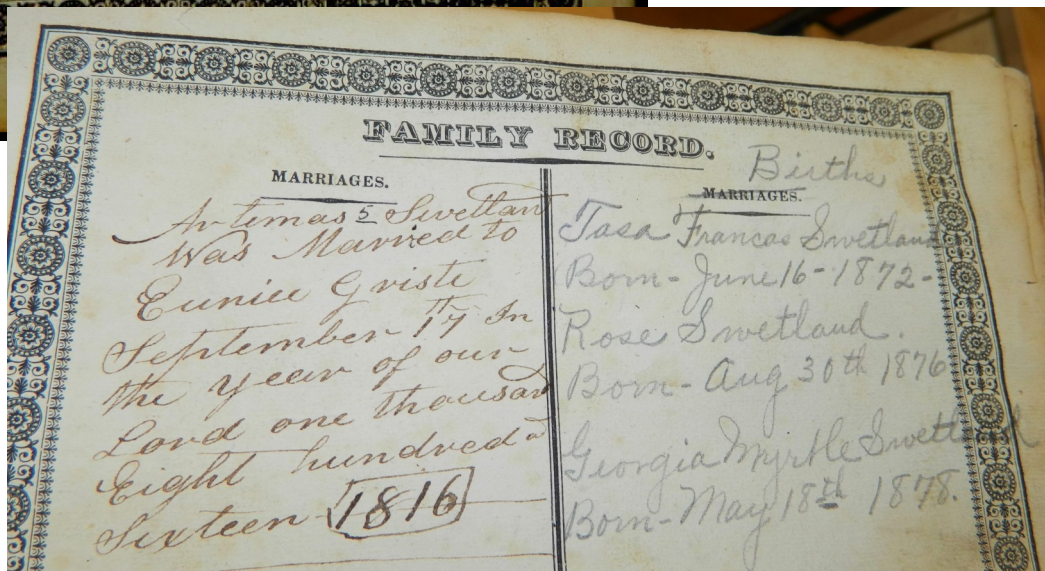 FAMILY RECORD.
MARRIAGES.
Artimas S Swetlan
Was Married to
Eunice Griste
September 17th In
the year of our
Lord one thousan
Eight hundred a
Sixteen 1816
Births
MARRIAGES.
Tasa Francas Swetland
Born - June 16 - 1872 -
Rose Swetland.
Born - Aug 30th 1876
Georgia Myrtle Swetland
Born - May 18th 1878.